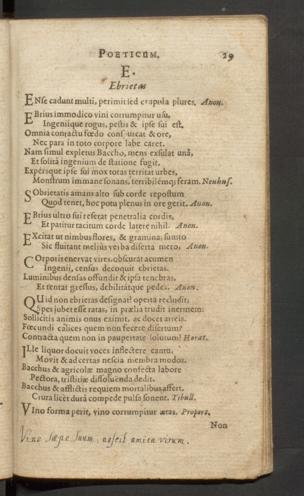 POETICUM. 29
E.
Ebrietas
ENse cadunt multi, perimit sed crapula plures. Anon.
EBrius immodico vini corrumpitur usu,
Ingeniique rogus, pestis & ipse sui est.
Omnia contactu fœdo & ore,
Nec para in toto corpore labe caret.
Nam simul expletus Baccho, mens exsulat unâ,
Et solitâ ingenium de statione fugit.
Expersque ipse sui mox totas territat urbes,
Monstrum immane sonans, terribilémq; feram. Neuhus.
SObrietatis amans alto sub corde repostum
Quod tenet, hoc potu plenus in ore gerit. Anon.
EBrius ultro sui reserat penetralia cordis,
Et patitur tacitum corde latere nihil. Anon.
EXcitat ut nimbus flores, & gramina, sumto
Sic fluitant melius verba diserta mero. Anon.
COrpori enervat vires, obscurat acumen
Ingenii, census decoquit ebrietas.
Luminibus densas offundit & ipsa tenebras,
Et tentat gressus, debilitatque pedes. Anon.
QUid non ebrietas designat? operta recludit;
Spes jubet esse ratas, in prælia trudit inermem:
Sollicitis animis onus eximit, ac docet arteis.
Fœcundi calices quem non fecere disertum?
Contracta quem non in paupertate solutum? Horat.
ILle liquor docuit voces inflectere cantu,
Movit & ad certas nescia membra modos.
Bacchus & agricolæ magno confecta labore
Pectora, tristitiæ dissoluenda dedit.
Bacchus & afflictis requiem mortalibus affert,
Crura licet dura compede pulsa sonent. Tibull.
VIno forma perit, vino corrumpitur ætas. Propert.
Non
Vino sæpe suum nescit amica virum.